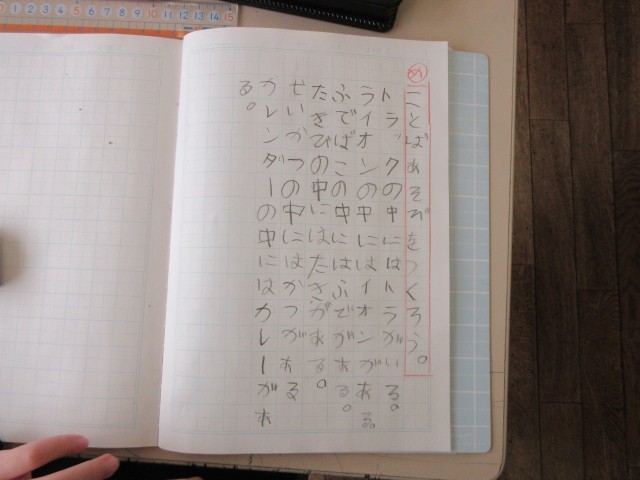 め
ことばあそびをつくろう。
トラックの中にはトラがいる。
ライオンの中にはイオンがある。
ふでばこの中にはふでがある。
たきびの中にはたきがある。
せいかつの中にはかつがある
カレンダーの中にはカレーがあ
る。
0 1 2 3 4 5 6 7 8 9 10 11 12 13 14 15